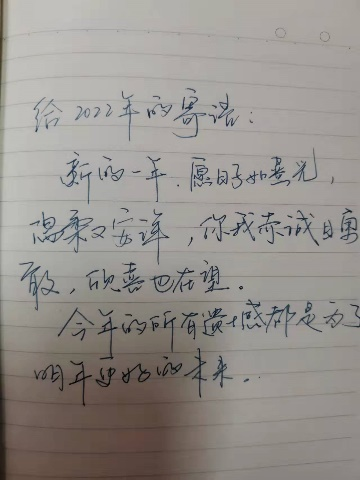 给2022年的寄语：
新的一年，愿日子如熹光，
温柔又安详，你我赤诚且勇
敢，欣喜也在望。
今年的所有遗憾都是为了
明年更好的未来。